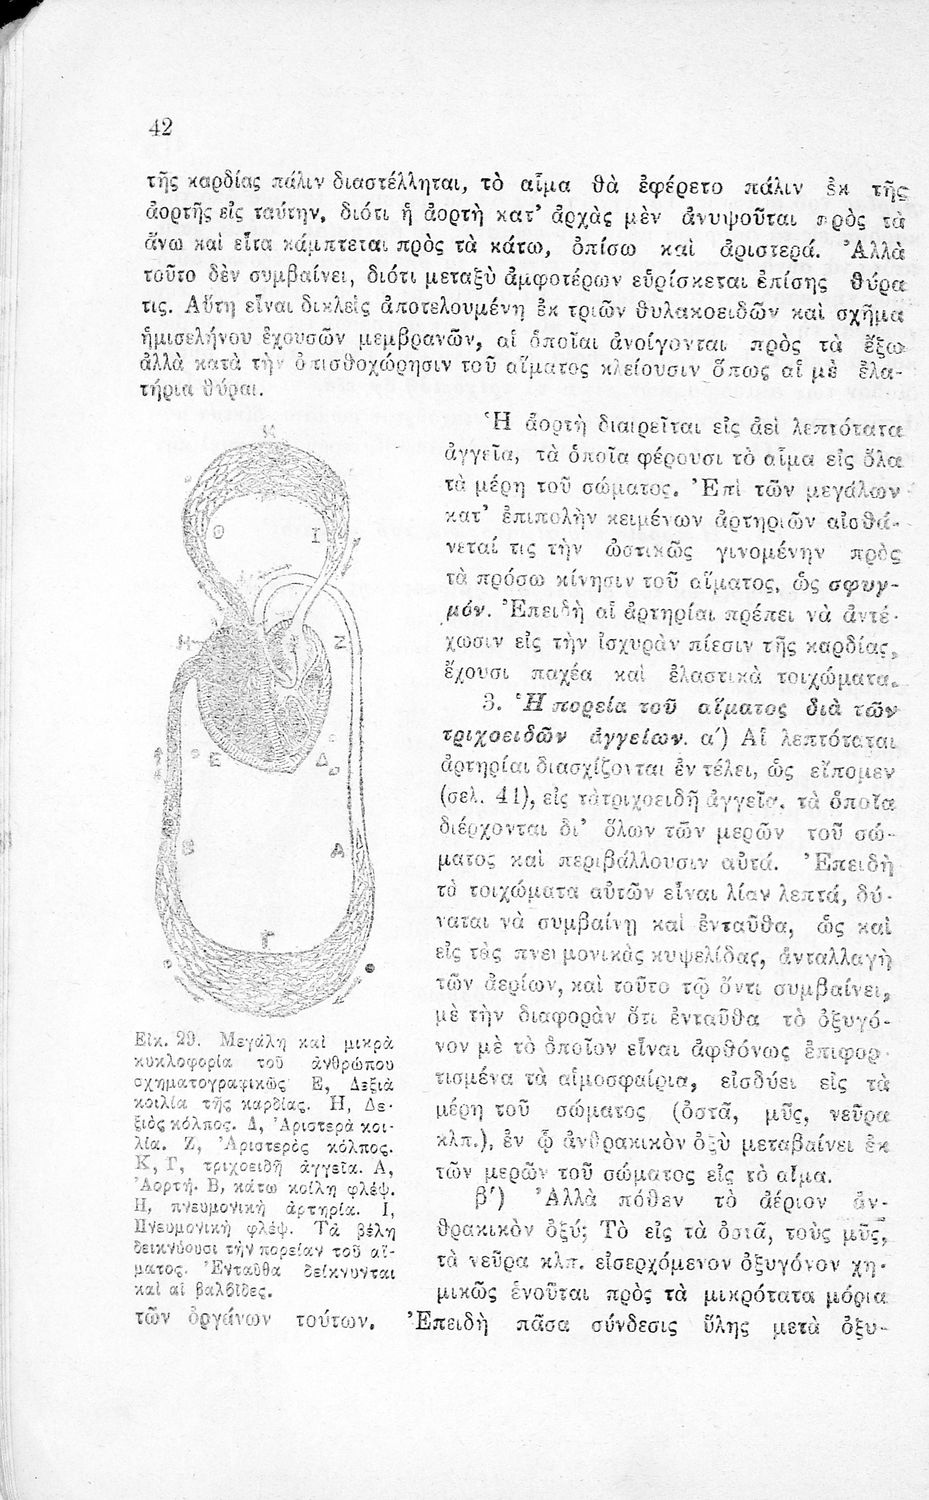 42
τῆς καρδίας πάλιν διαστέλληται, τὸ αἷμα θὰ ἐφέρετο πάλιν ἐκ τῆς
ἀορτῆς εἰς ταύτην, διότι ἡ ἀορτὴ κατ' ἀρχὰς μὲν ἀνυψοῦται πρὸς τὰ
ἄνω καὶ εἶτα κάμπτεται πρὸς τὰ κάτω, ὀπίσω καὶ ἀριστερά. Ἀλλὰ
τοῦτο δὲν συμβαίνει, διότι μεταξὺ ἀμφοτέρων εὑρίσκεται ἐπίσης θύρα
τις. Αὕτη εἶναι δικλεὶς ἀποτελουμένη ἐκ τριῶν θυλακοειδῶν καὶ σχῆμα
ἡμισελήνου ἐχουσῶν μεμβρανῶν, αἱ ὁποῖαι ἀνοίγονται πρὸς τὰ ἔξω
ἀλλὰ κατὰ τὴν ὀπισθοχώρησιν τοῦ αἵματος κλείουσιν ὅπως αἱ μὲ ἐλα-
τήρια θύραι.
Ἡ ἀορτὴ διαιρεῖται εἰς ἀεὶ λεπτότατα
ἀγγεῖα, τὰ ὁποῖα φέρουσι τὸ αἷμα εἰς ὅλα
τὰ μέρη τοῦ σώματος. Ἐπὶ τῶν μεγάλων
κατ' ἐπιπολὴν κειμένων ἀρτηριῶν αἰσθά-
νεταί τις τὴν ὠστικῶς γινομένην πρὸς
τὰ πρόσω κίνησιν τοῦ αἵματος, ὡς σφυγ-
μόν. Ἐπειδὴ αἱ ἀρτηρίαι πρέπει νὰ ἀντέ-
χωσιν εἰς τὴν ἰσχυρὰν πίεσιν τῆς καρδίας,
ἔχουσι παχέα καὶ ἐλαστικὰ τοιχώματα.
3. Ἡ πορεία τοῦ αἵματος διὰ τῶν
τριχοειδῶν ἀγγείων. α') Αἱ λεπτόταται
ἀρτηρίαι διασχίζονται ἐν τέλει, ὡς εἴπομεν
(σελ. 41), εἰς τὰ τριχοειδῆ ἀγγεῖα, τὰ ὁποῖα
διέρχονται δι' ὅλων τῶν μερῶν τοῦ σώ-
ματος καὶ περιβάλλουσιν αὐτά. Ἐπειδὴ
τὰ τοιχώματα αὐτῶν εἶναι λίαν λεπτά, δύ-
ναται νὰ συμβαίνῃ καὶ ἐνταῦθα, ὡς καὶ
εἰς τὰς πνευμονικὰς κυψελίδας, ἀνταλλαγὴ
τῶν ἀερίων, καὶ τοῦτο τῷ ὄντι συμβαίνει,
μὲ τὴν διαφορὰν ὅτι ἐνταῦθα τὸ ὀξυγό-
νον μὲ τὸ ὁποῖον εἶναι ἀφθόνως ἐπιφορ-
τισμένα τὰ αἱμοσφαίρια, εἰσδύει εἰς τὰ
μέρη τοῦ σώματος (ὀστᾶ, μῦς, νεῦρα
κλπ.), ἐν ᾧ ἀνθρακικὸν ὀξὺ μεταβαίνει ἐκ
τῶν μερῶν τοῦ σώματος εἰς τὸ αἷμα.
β') Ἀλλὰ πόθεν τὸ ἀέριον ἀν-
θρακικὸν ὀξύ; Τὸ εἰς τὰ ὀστᾶ, τοὺς μῦς,
τὰ νεῦρα κλπ. εἰσερχόμενον ὀξυγόνον χη-
μικῶς ἑνοῦται πρὸς τὰ μικρότατα μόρια
τῶν ὀργάνων τούτων. Ἐπειδὴ πᾶσα σύνδεσις ὕλης μετὰ ὀξυ-
Κ
Θ
Ι
Η
Ζ
Ε
Δ
Β
Α
Γ
Εἰκ. 29. Μεγάλη καὶ μικρὰ
κυκλοφορία τοῦ ἀνθρώπου
σχηματογραφικῶς Ε, Δεξιὰ
κοιλία τῆς καρδίας. Η, Δε-
ξιὸς κόλπος. Δ, Ἀριστερὰ κοι-
λία. Ζ, Ἀριστερὸς κόλπος.
Κ, Γ, τριχοειδῆ ἀγγεῖα. Α,
Ἀορτή. Β, κάτω κοίλη φλέψ.
Η, πνευμονικὴ ἀρτηρία. Ι,
Πνευμονικὴ φλέψ. Τὰ βέλη
δεικνύουσι τὴν πορείαν τοῦ αἵ-
ματος. Ἐνταῦθα δείκνυνται
καὶ αἱ βαλβῖδες.